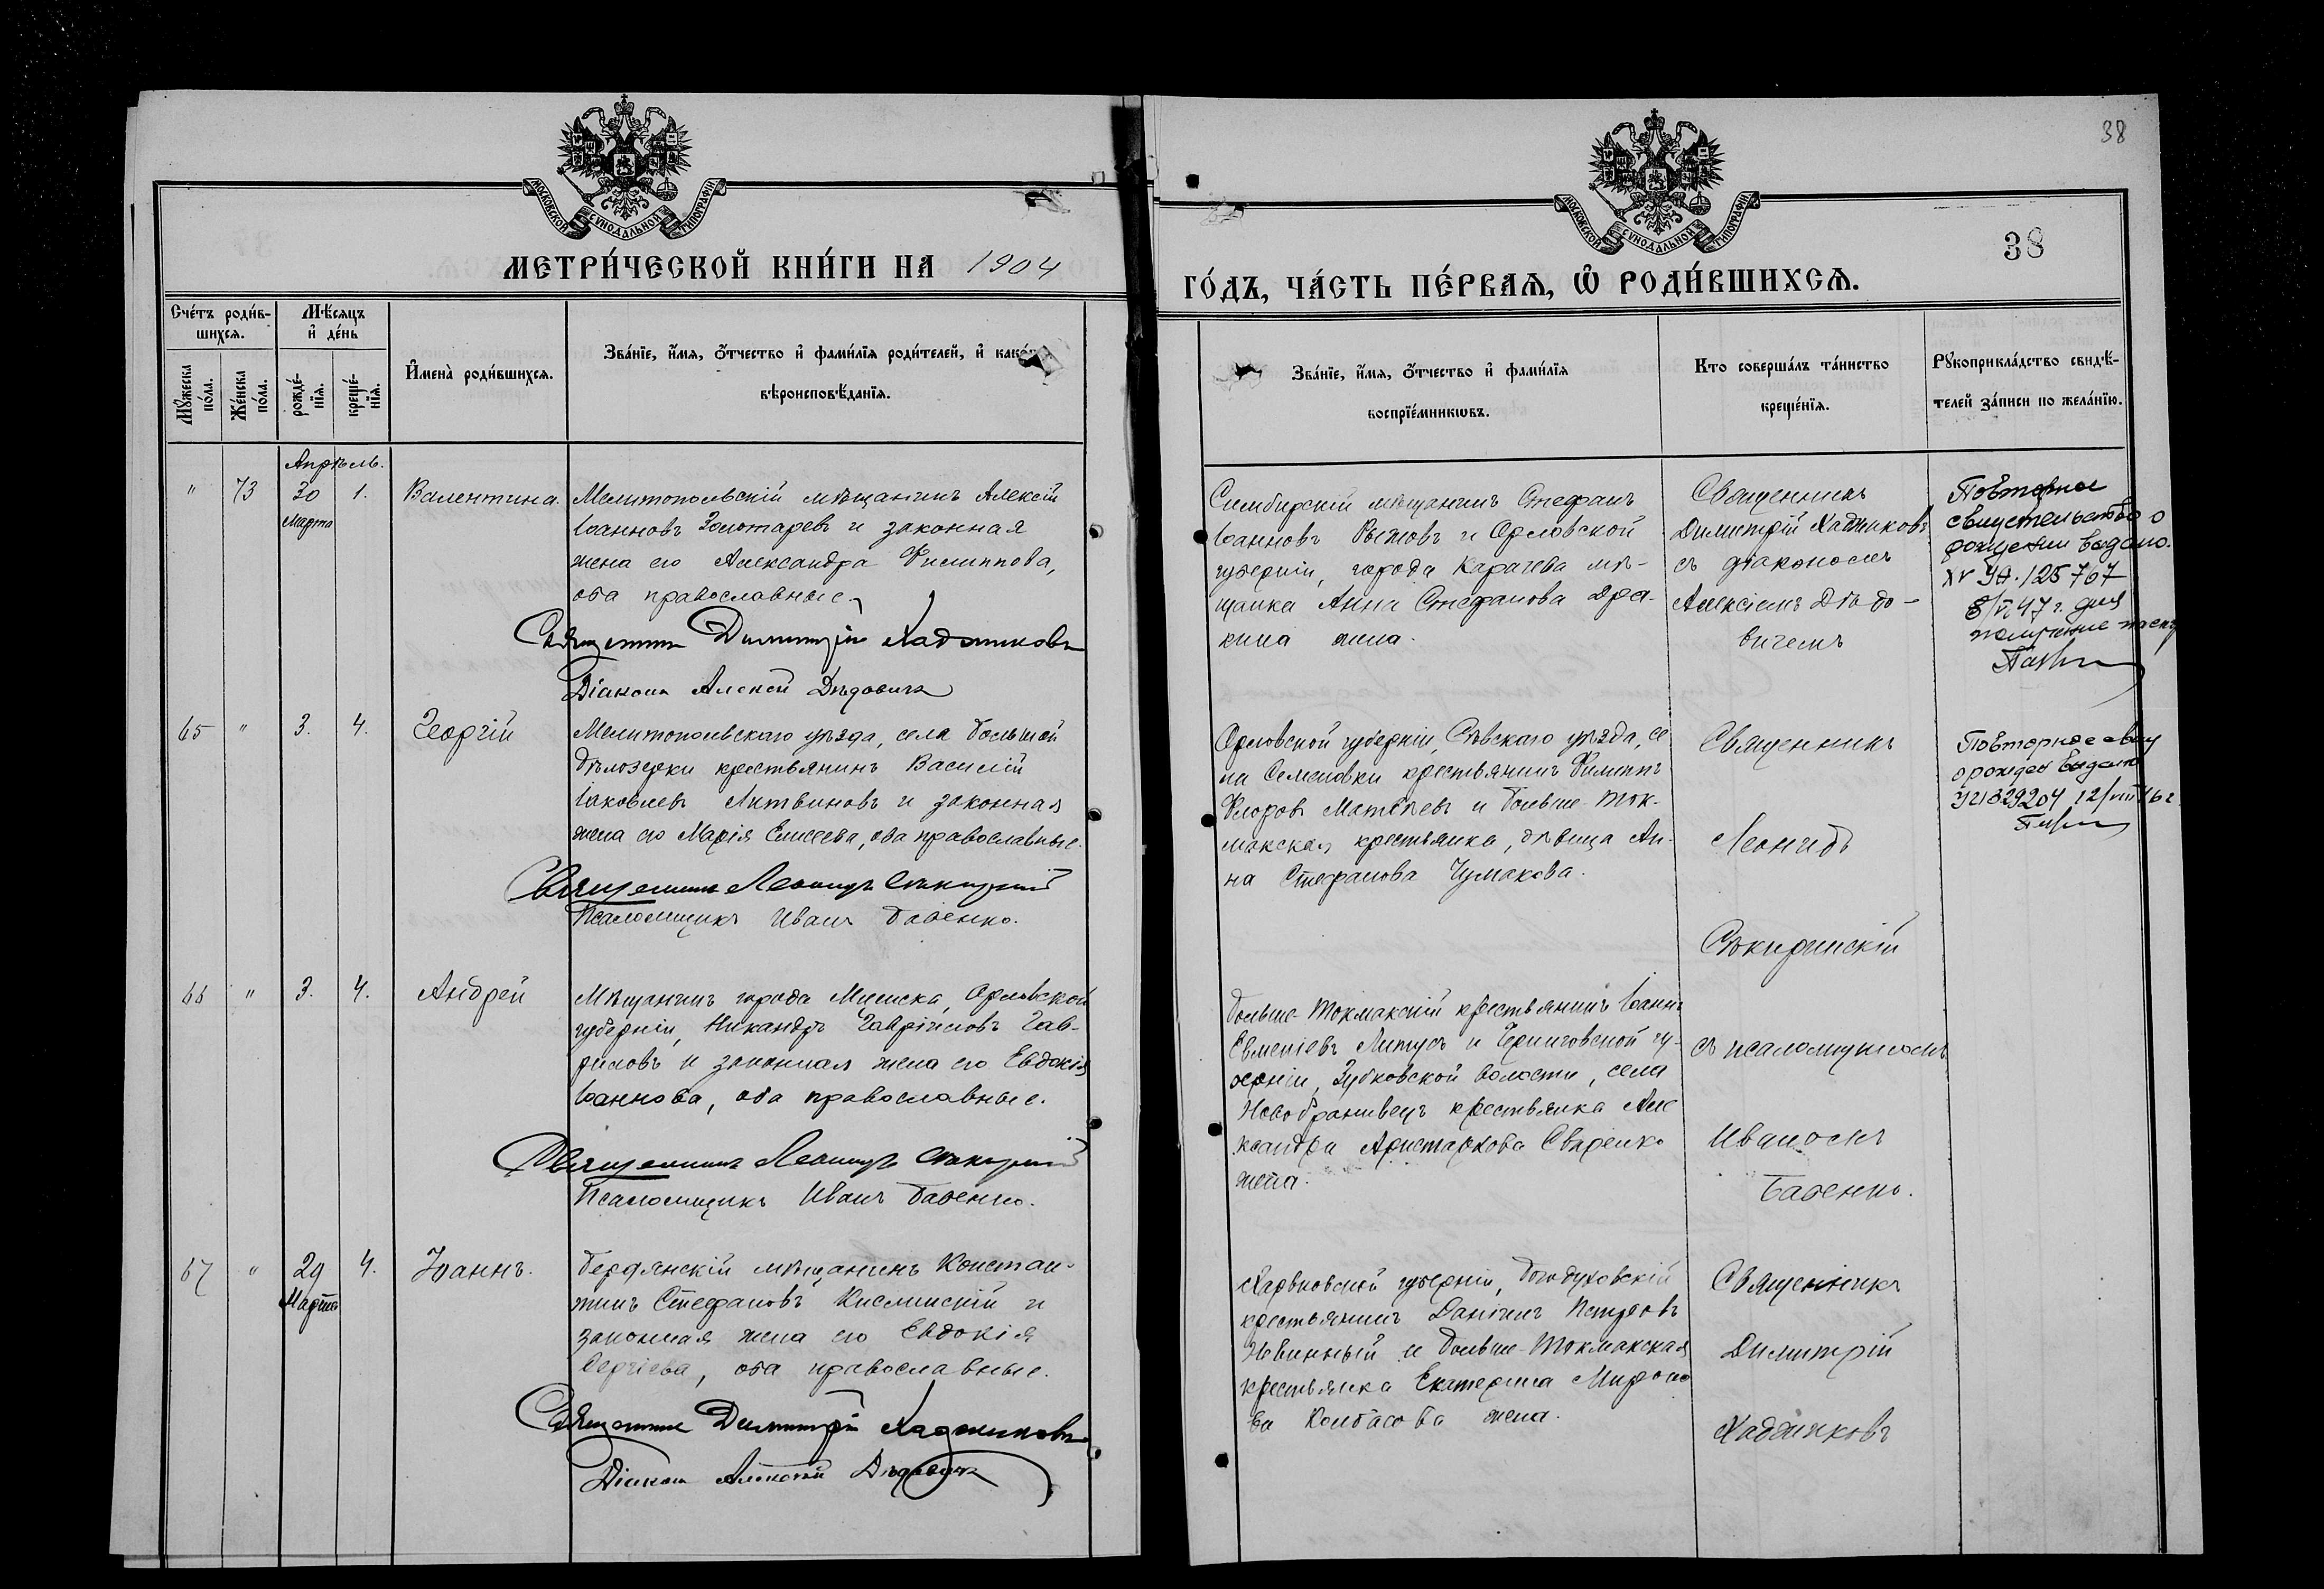 38
МОСКОВСКОЙ СѴНОДАЛЬНОЙ ТИПОГРАФІИ
МОСКОВСКОЙ СѴНОДАЛЬНОЙ ТИПОГРАФІИ
38
МЕТРИ́ЧЕСКОЙ КНИ́ГИ НА 1904
ГО́ДЪ, ЧА́СТЬ ПЕ́РВАѦ, Ѽ РОДИ́ВШИХСѦ.
Сче́тъ роди́в-
шихсѧ.
Мꙋ́жеска по́ла.
Же́нска по́ла.
Мѣ́сѧцъ
и҆ де́нь
рожде́-
нїѧ.
креще́-
нїѧ.
И҆мена̀ роди́вшихсѧ.
Зва́нїе, и҆́мѧ, ѻ҆́тчество и҆ фами́лїѧ роди́телей, и҆ како́гѡ
вѣроисповѣ́данїѧ.
Зва́нїе, и҆́мѧ, ѻ҆́тчество и҆ фами́лїѧ
воспрїе́мникѡвъ.
Кто соверша́лъ та́инство
креще́нїѧ.
Рꙋкоприкла́дство свидѣ́-
телей за́писи по жела́нїю.
Апрѣль.
" 73 30 1. Валентина.
Марта
Мелитопольскій мѣщанинъ Алексій
Іоанновъ Золотаревъ и законная
жена его Александра Филиппова,
оба православные.
Священникъ Димитрій Хаджиковъ
Діаконъ Алексей Дѣдовичъ
Симбирскій мѣщанинъ Стефанъ
Іоанновъ Рыжовъ и Орловской
губерніи, города Карачева мѣ-
щанка Анна Стефанова Дра-
кина жена.
Священникъ
Димитрій Хаджиковъ
съ діакономъ
Алексіемъ Дѣдо-
вичемъ
Повторное
свидетельство о
рождении выдано.
125767
47 г. для
65 " 3. 4. Георгій
Мелитопольскаго уѣзда, села Большой
Бѣлозерки крестьянинъ Василій
Іаковлевъ Литвиновъ и законная
жена его Марія Елисеева, оба православные.
Священникъ Леонидъ Сѣкиринскій
Псаломщикъ Иванъ Бабенко.
Орловской губерніи, Сѣвскаго уѣзда, се
ла Семеновки крестьянинъ Филиппъ
Флоровъ Матвѣевъ и Больше-Ток-
макская крестьянка, дѣвица Ан-
на Стефанова Чумакова.
Священникъ
Леонидъ
Сѣкиринскій
Повторное свид
о рожден выдано
329204 12/VIII 46 г
66 " 3. 4. Андрей
Мѣщанинъ города Мценска, Орловской
губерніи, Никандръ Гавріиловъ Гав-
риловъ и законная жена его Евдокія
Іоаннова, оба православные.
Священникъ Леонидъ Сѣкиринскій
Псаломщикъ Иванъ Бабенко.
Больше-Токмакскій крестьянинъ Іоаннъ
Евменіевъ Литусъ и Черниговской гу-
берніи, Зубковской волости, села
крестьянка Але
ксандра Аристархова
жена.
съ псаломщикомъ
Иваномъ
Бабенко.
67 " 29 4. Іоаннъ.
Марта
Бердянскій мѣщанинъ Констан-
тинъ Стефановъ Кислинскій и
законная жена его Евдокія
Сергіева, оба православные.
Священникъ Димитрій Хаджиковъ
Діаконъ Алексей Дѣдовичъ
Харьковской губерніи, Богодуховскій
крестьянинъ Даніилъ Петровъ
Невинный и Больше-Токмакская
крестьянка Екатерина Мироно
ва Колбасова жена.
Священникъ
Димитрій
Хаджиковъ